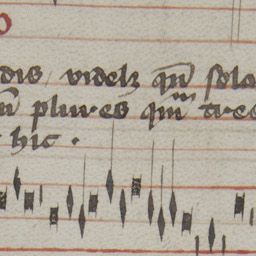 dis videlz qn̄ sola
n̄ plures qm̄ tres
hic ·